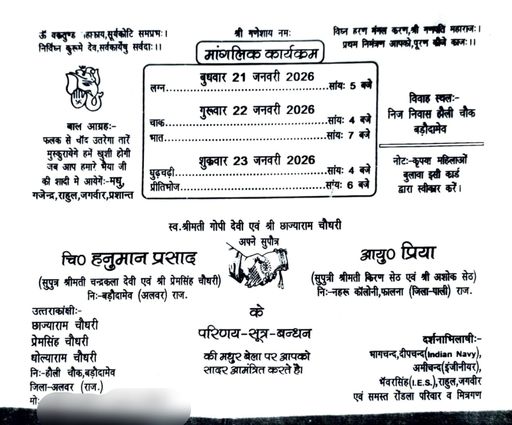 ॐ वक्रतुण्ड महाकाय,सूर्यकोटि समप्रभः।
निर्विघ्नं कुरूमे देव,सर्वकार्येषु सर्वदाः।।
श्री गणेशाय नमः
विघ्न हरण मंगल करण,श्री गणपति महाराज।
प्रथम निमंत्रण आपको,पूरण कीजे काज।।
मांगलिक कार्यक्रम
बुधवार 21 जनवरी 2026
लग्न.....सांयः 5 बजे
गुरूवार 22 जनवरी 2026
चाक.....सांयः 4 बजे
भात.....सांयः 7 बजे
शुक्रवार 23 जनवरी 2026
घुड़चढ़ी.....सांयः 4 बजे
प्रीतिभोज.....सांयः 6 बजे
बाल आग्रहः-
फलक से चाँद उतरेगा तारें
मुस्कुरायेगे हमें खुशी होगी
जब आप हमारे भैया जी
की शादी मे आयेगेंः-मधु,
गजेन्द्र,राहुल,जगवीर,प्रशान्त
विवाह स्थलः-
निज निवास होली चौक
बड़ौदामेव
नोटः-कृपया महिलाओं
बुलावा इसी कार्ड
द्वारा स्वीकार करें।
स्व.श्रीमती गोपी देवी एवं श्री छाज्याराम चौधरी
अपने सुपौत्र
चि0 हनुमान प्रसाद
(सुपुत्र श्रीमती चन्द्रकला देवी एवं श्री प्रेमसिंह चौधरी)
निः-बड़ौदामेव (अलवर) राज.
आयु0 प्रिया
(सुपुत्री श्रीमती किरण सेठ एवं श्री अशोक सेठ)
निः-नहरू कॉलोनी,फालना (जिला-पाली) राज.
के
परिणय-सूत्र-बन्धन
की मधुर बेला पर आपको
सादर आमंत्रित करते है।
उत्तराकांक्षीः-
छाज्याराम चौधरी
प्रेमसिंह चौधरी
धोल्याराम चौधरी
निः-होली चौक,बड़ौदामेव
जिला-अलवर (राज.)
मोः
दर्शनाभिलाषीः-
भागचन्द,दीपचन्द(Indian Navy),
अमीचन्द(इंजीनीयर),
भँवरसिंह(I.E.S.),राहुल,जगवीर
एवं समस्त रोंडला परिवार व मित्रगण